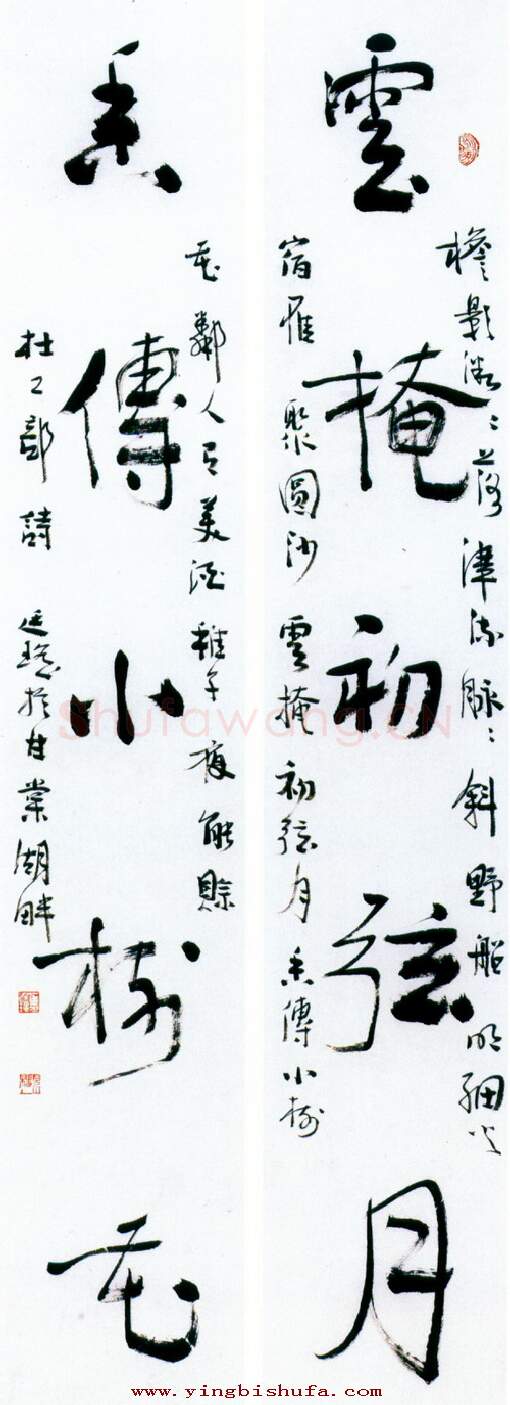 雲掩初弦月
香傳小樹花
檐影微〻落津流脉〻斜野船明細火
宿雁聚圓沙雲掩初弦月香傳小樹
花鄰人有美酒稚子夜能賒
杜工部詩 於甘棠湖畔
Shufawang.CN
www.yingbishufa.com